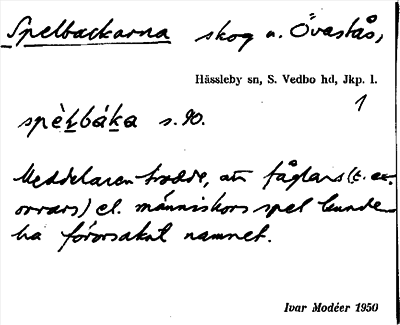 Spelbackarna skog u. Övastås,
Hässleby sn, S. Vedbo hd, Jkp. l.
1
spèḷbáka s. 90.
Meddelaren trodde, att fåglars (t. ex.
orrars) el. människors spel kunde
ha förorsakat namnet.
Ivar Modéer 1950